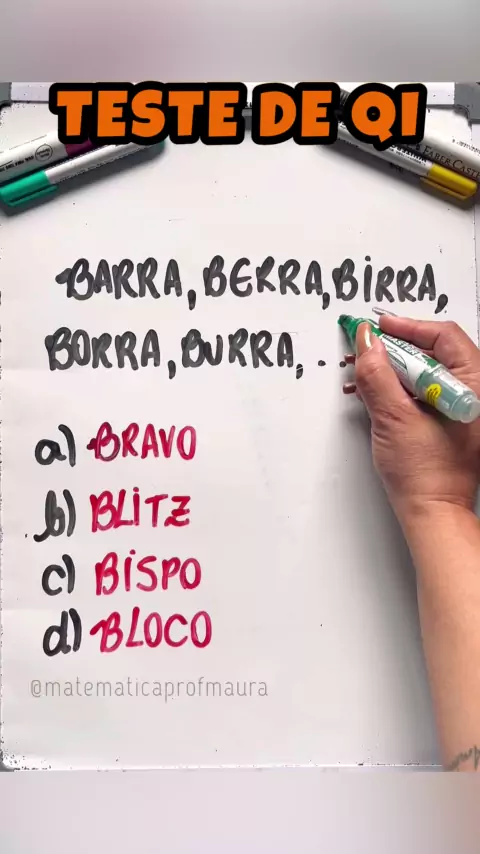 TESTE DE QI
FABER CASTELL
BARRA, BERRA, BIRRA,
BORRA, BURRA, ...
a) BRAVO
b) BLITZ
c) BISPO
d) BLOCO
@matematicaprofmaura